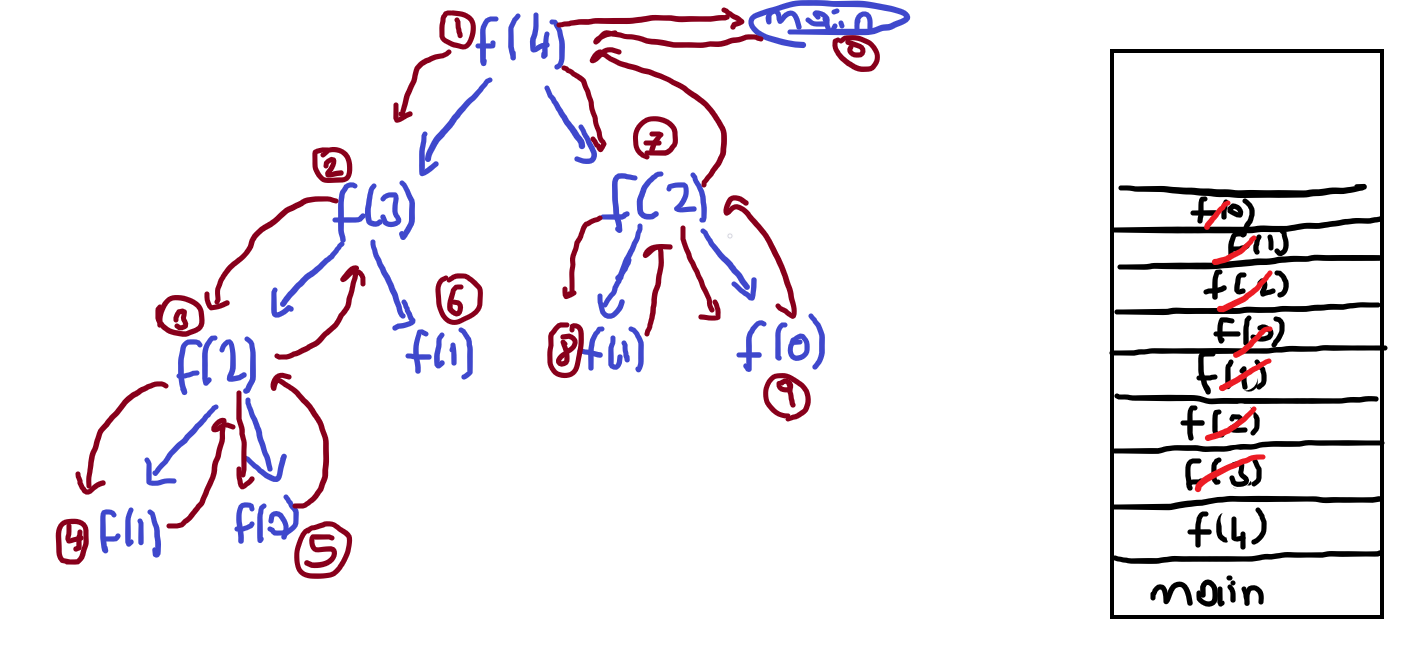 1 f(4) main
0
7
2 f(3) f(2)
3 6
f(2) f(1) 8 f(1) f(0)
9
4 f(1) f(0) 5
f(0)
f(1)
f(2)
f(0)
f(1)
f(2)
f(3)
f(4)
main